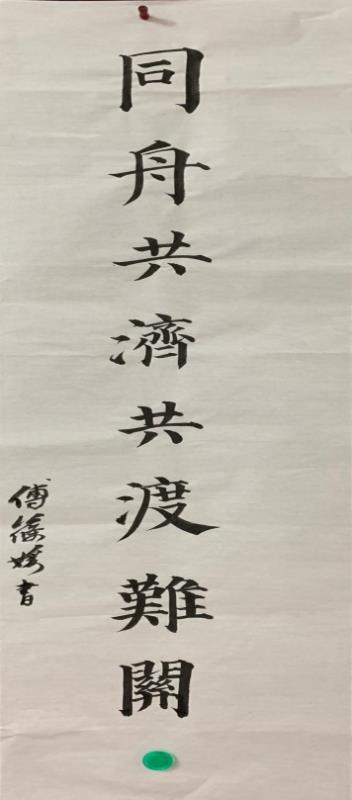 同舟共濟共渡難關
傅篠娉書